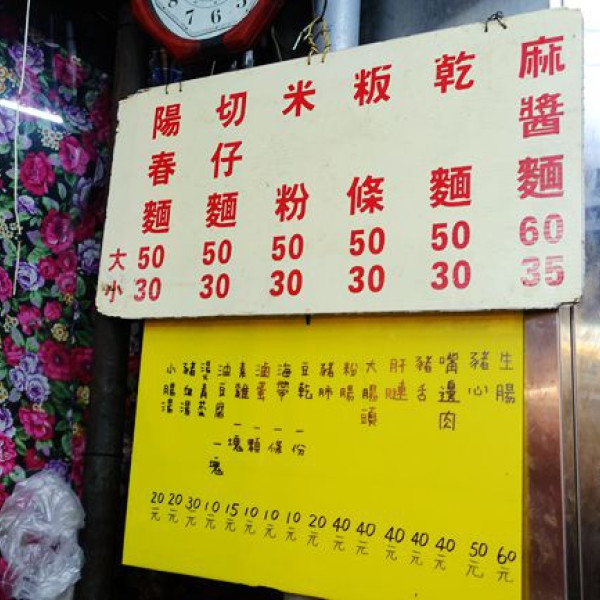 8 7 6 5
麻醬麵 60 35
乾麵 50 30
粄條 50 30
米粉 50 30
切仔麵 50 30
陽春麵 50 30
大
小
生腸 60元
豬心 50元
嘴邊肉 40元
豬舌 40元
肝 40元
大腸頭 40元
粉腸 40元
豬肺 20元
豆乾一份 10元
海帶一條 10元
滷蛋一顆 10元
素雞一塊 15元
油豆腐一塊 10元
燙青菜 30元
豬血湯 20元
小腸湯 20元